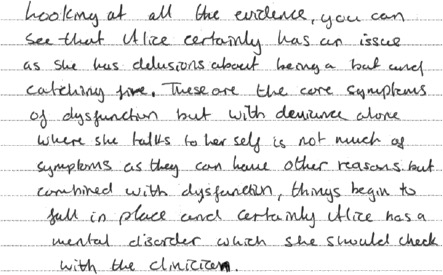 Looking at all the evidence, you can
see that Alice certainly has an issue
as she has delusions about being a bat and
catching fire. These are the core symptoms
of dysfunction but with deviance alone
where she talks to her self is not much of
symptoms as they can have other reasons. but
combined with dysfunction, things begin to
fall in place and certainly Alice has a
mental disorder which she should check
with the clinician.